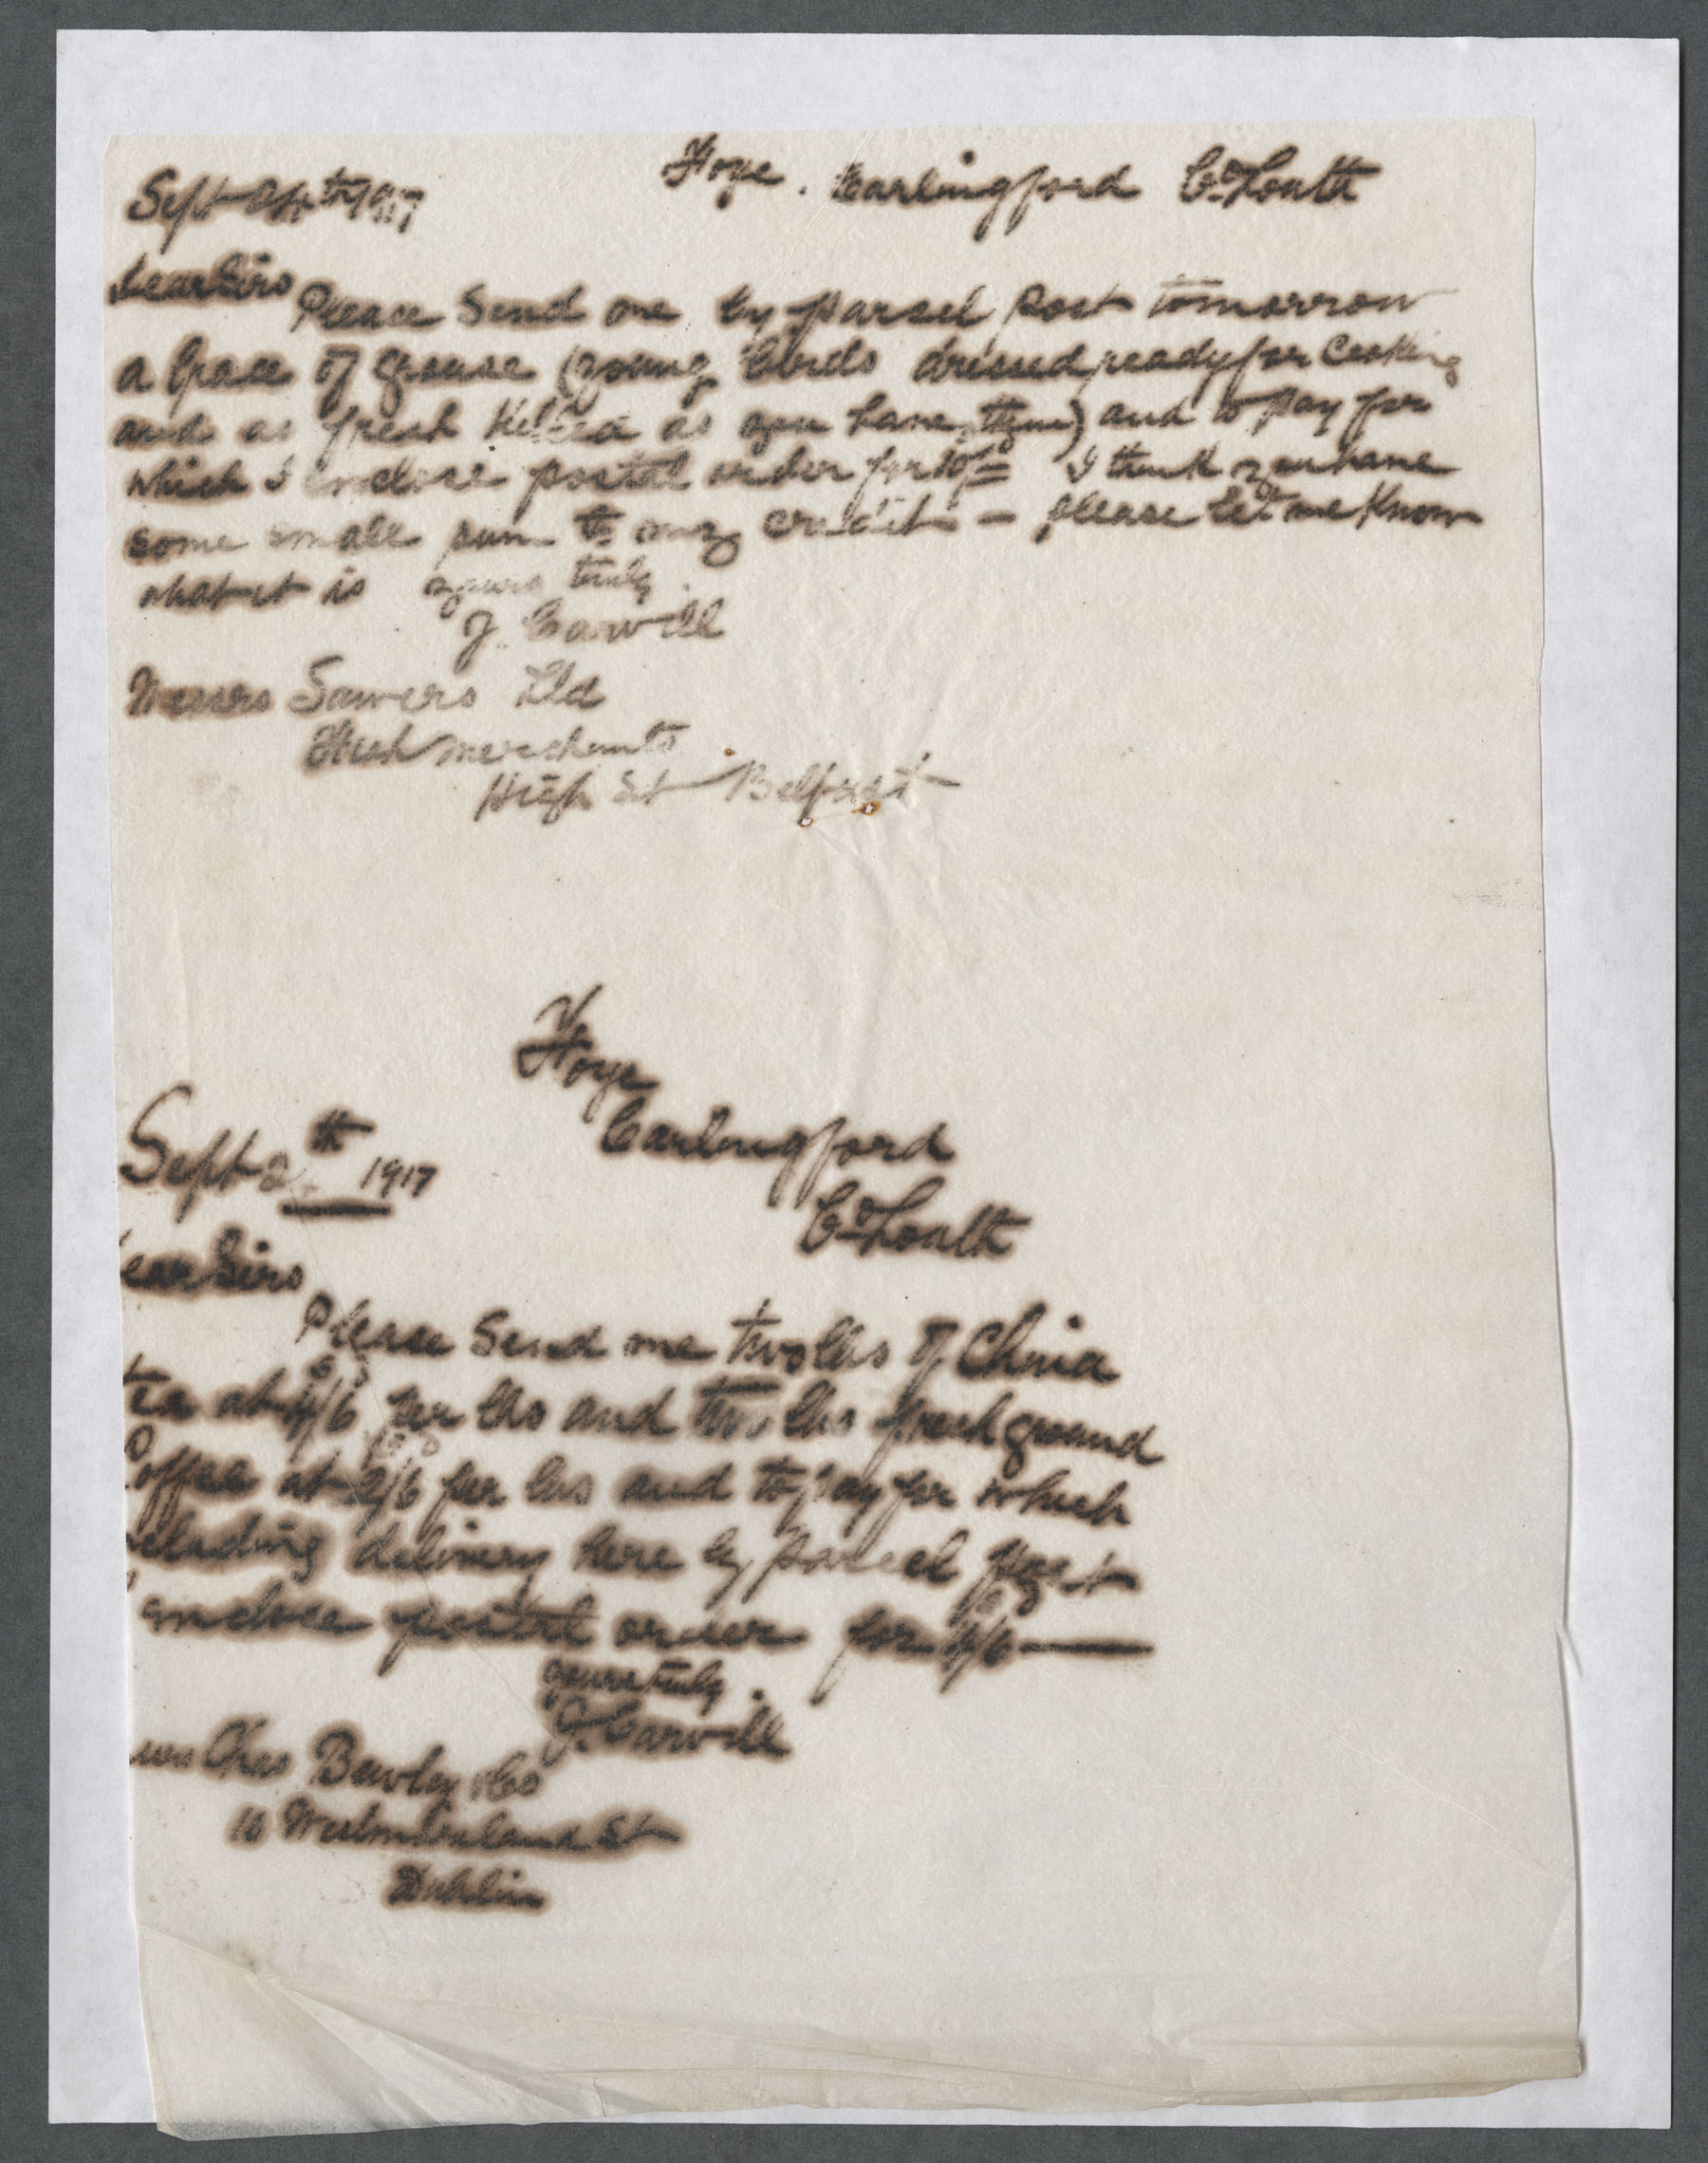 Foye. Carlingford Co Louth
Sept 24th 1917
Dear Sirs
Please Send me by parcel post tomorrow
a brace of grouse (young birds dressed ready for Cooking
and as fresh Killed as you have them) and to pay for
which I enclose postal order for 10/= I think you have
some small sum to my credit — please let me Know
what it is yours truly
J. Carvill
Messrs Sawers Ltd
Fish merchants
High St Belfast
Foye
Carlingford
Co Louth
Sept th 1917
ear Sirs
Please Send me two lbs of China
tea at 4/6 per lbs and two lbs fresh ground
Coffee at 2/6 per lbs and to pay for which
cluding delivery here by parcel post
enclose postal order for
yours truly
J. Carvill
Bewley & Co
Westmoreland St
Dublin